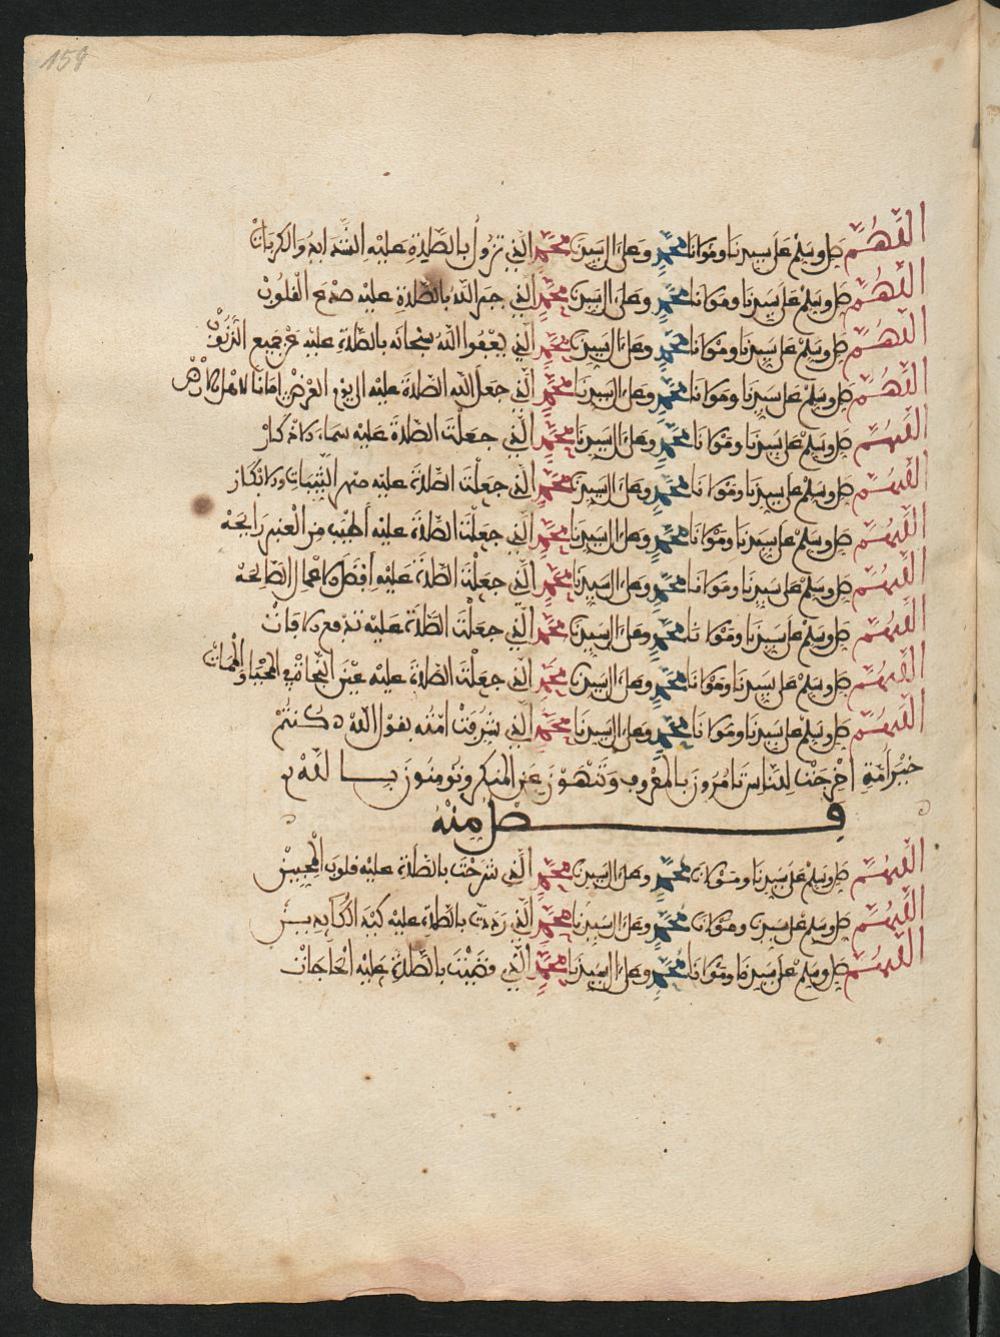 159
اللهم صل وسلم على سيدنا ومولانا محمد وعلى ال سيدنا محمد الذي تزول بالصلاة عليه الشدايد والكربات
اللهم صل وسلم على سيدنا ومولانا محمد وعلى ال سيدنا محمد الذي جبر الله بالصلاة عليه صدع القلوب
اللهم صل وسلم على سيدنا ومولانا محمد وعلى ال سيدنا محمد الذي يعفوا الله سبحانه بالصلاة عليه عن جميع
اللهم صل وسلم على سيدنا ومولانا محمد وعلى ال سيدنا محمد الذي جعل الله الصلاة عليه الى يوم العرض امانا لاهل الارض
اللهم صل وسلم على سيدنا ومولانا محمد وعلى ال سيدنا محمد الذي جعلت الصلاة عليه سماء الاذكار
اللهم صل وسلم على سيدنا ومولانا محمد وعلى ال سيدنا محمد الذي جعلت الصلاة عليه الثيبات والابكار
اللهم صل وسلم على سيدنا ومولانا محمد وعلى ال سيدنا محمد الذي جعلت الصلاة عليه أطيب من العنبر رايحة
اللهم صل وسلم على سيدنا ومولانا محمد وعلى ال سيدنا محمد الذي جعلت الصلاة عليه أفضل الاعمال الصالحة
اللهم صل وسلم على سيدنا ومولانا محمد وعلى ال سيدنا محمد الذي جعلت الصلاة عليه تدفع الافات
اللهم صل وسلم على سيدنا ومولانا محمد وعلى ال سيدنا محمد الذي جعلت الصلاة عليه عين النجاة في المحيا والممات
اللهم صل وسلم على سيدنا ومولانا محمد وعلى ال سيدنا محمد الذي شرفت امته بقول الله كنتم
خير أمة اخرجت للناس تامرون بالمعروف وتنهون عن المنكر وتومنون بالله
فصل منه
اللهم صل وسلم على سيدنا ومولانا محمد وعلى ال سيدنا محمد الذي شرحت بالصلاة عليه قلوب المحبين
اللهم صل وسلم على سيدنا ومولانا محمد وعلى ال سيدنا محمد الذي رددت بالصلاة عليه كيد الكايدين
اللهم صل وسلم على سيدنا ومولانا محمد وعلى ال سيدنا محمد الذي قضيت بالصلاة عليه الحاجات